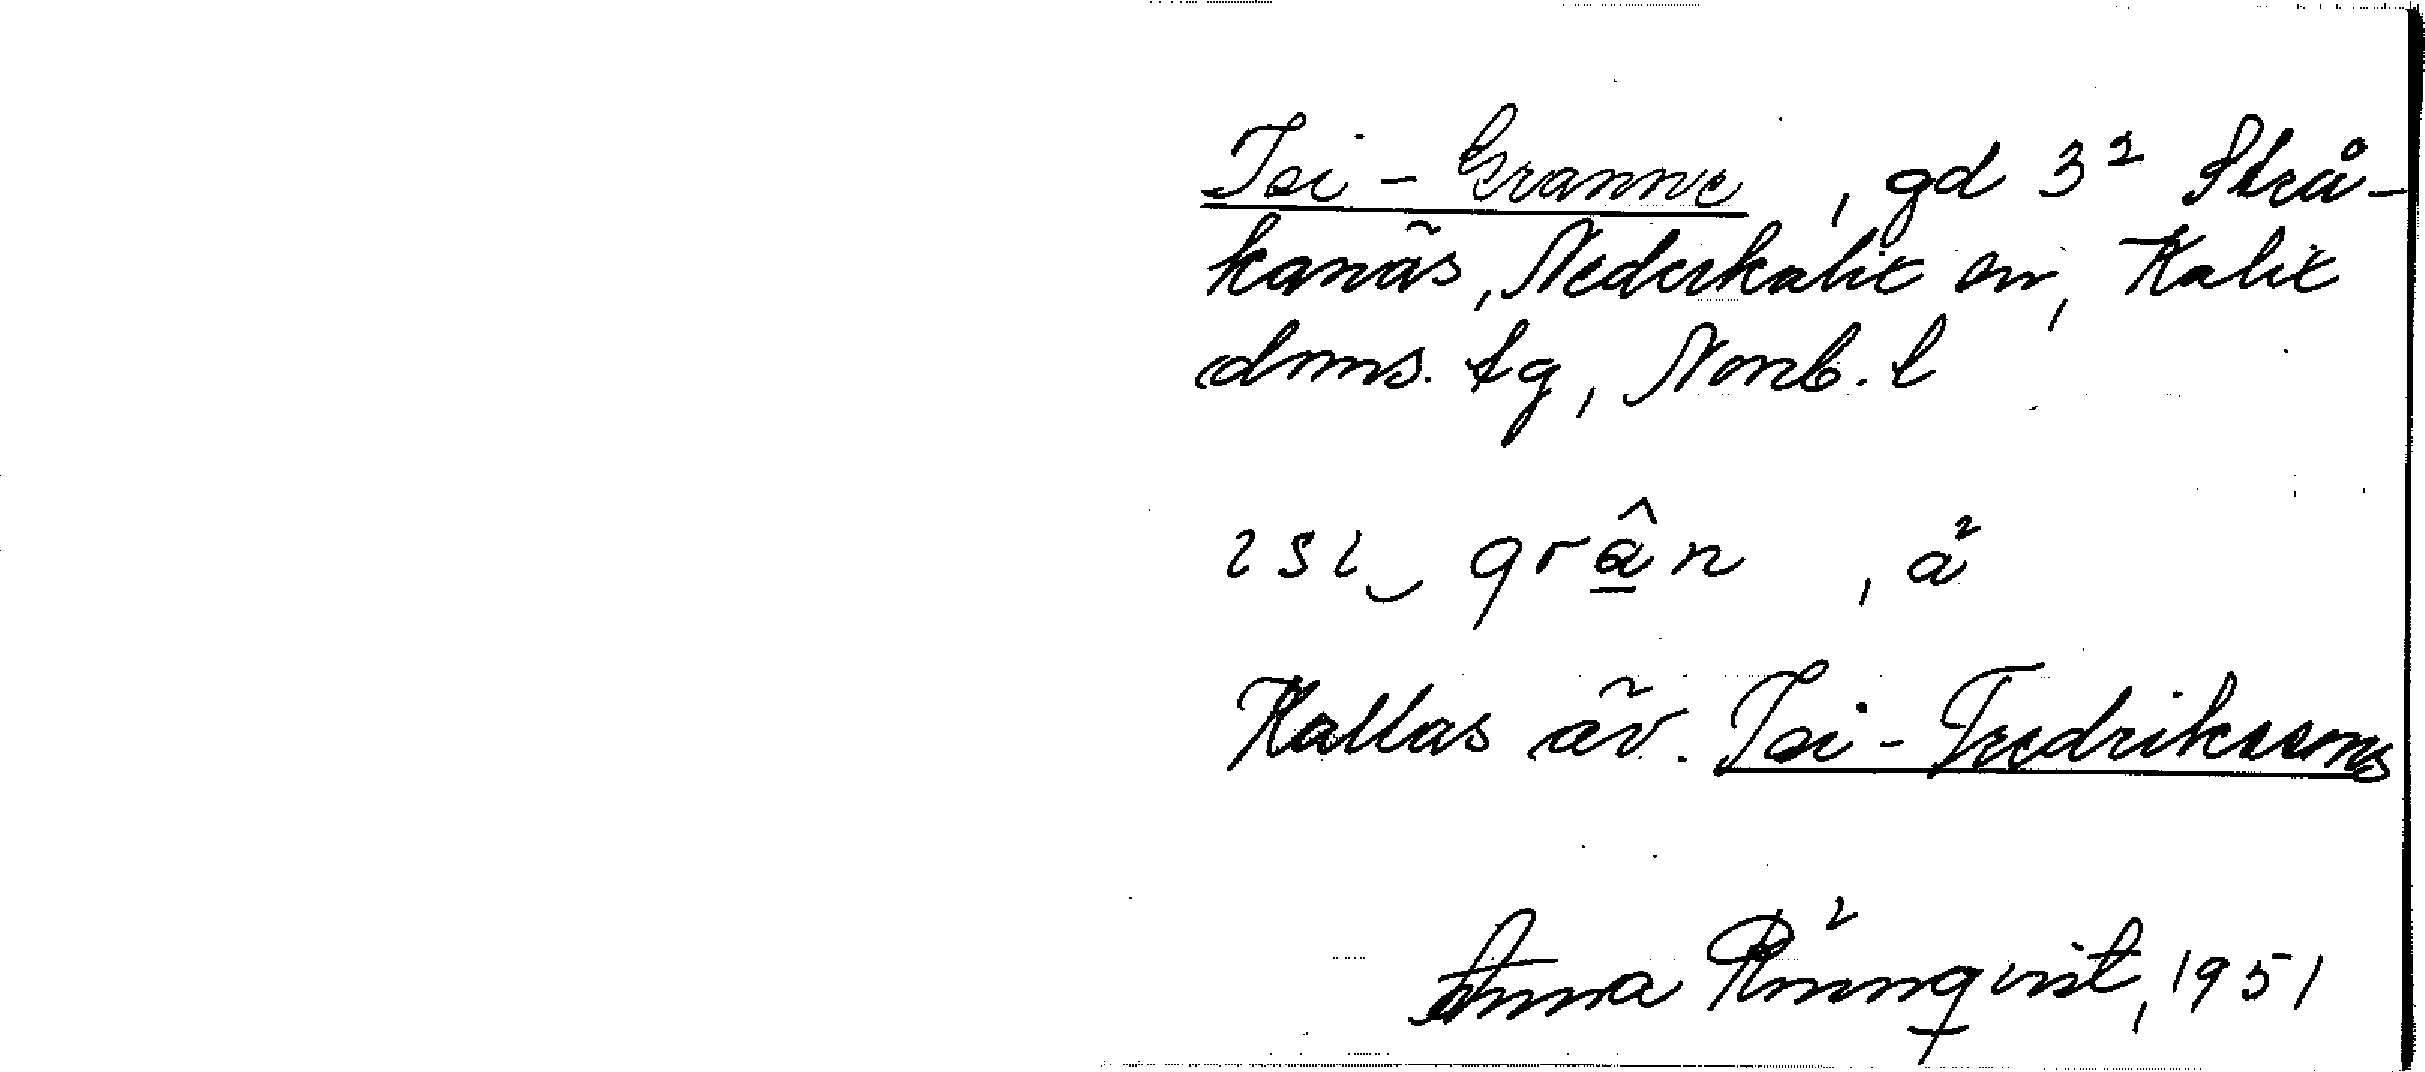 Isi-Granne, gd 3² Strå-
kanäs, Nederkalix sn, Kalix
dms. tg, Norrb. l
ɪsɪ‿grâ̱n, å²
Kallas äv. Isi-Fredrikssons
Anna Rönnqvist, 1951